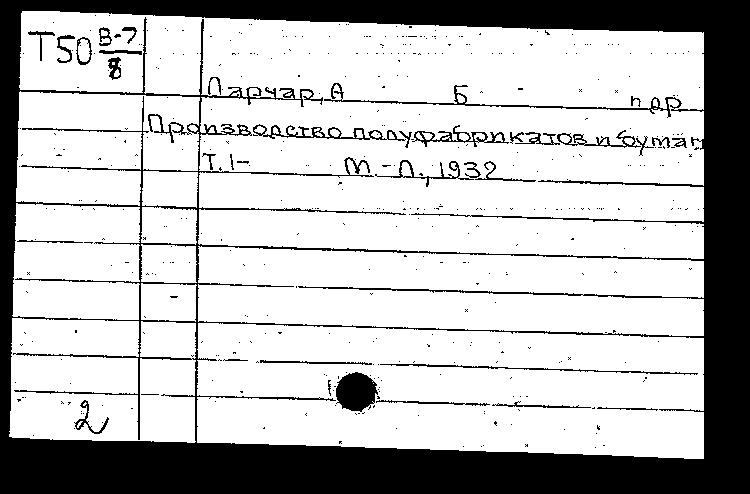 Т50 В-7
8
Ларчар, А Б п др
Производство полуфабрикатов и бумаг
Т. I- М.-Л., 1932
2